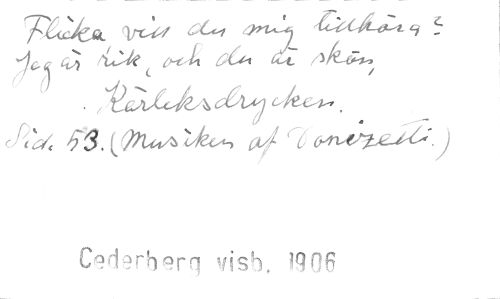 Flicka vill du mig tillhöra?
Jag är rik, och du är skön,
Kärleksdrycken.
Sid. 53. (Musiken af Donizetti.)
Cederberg visb. 1906